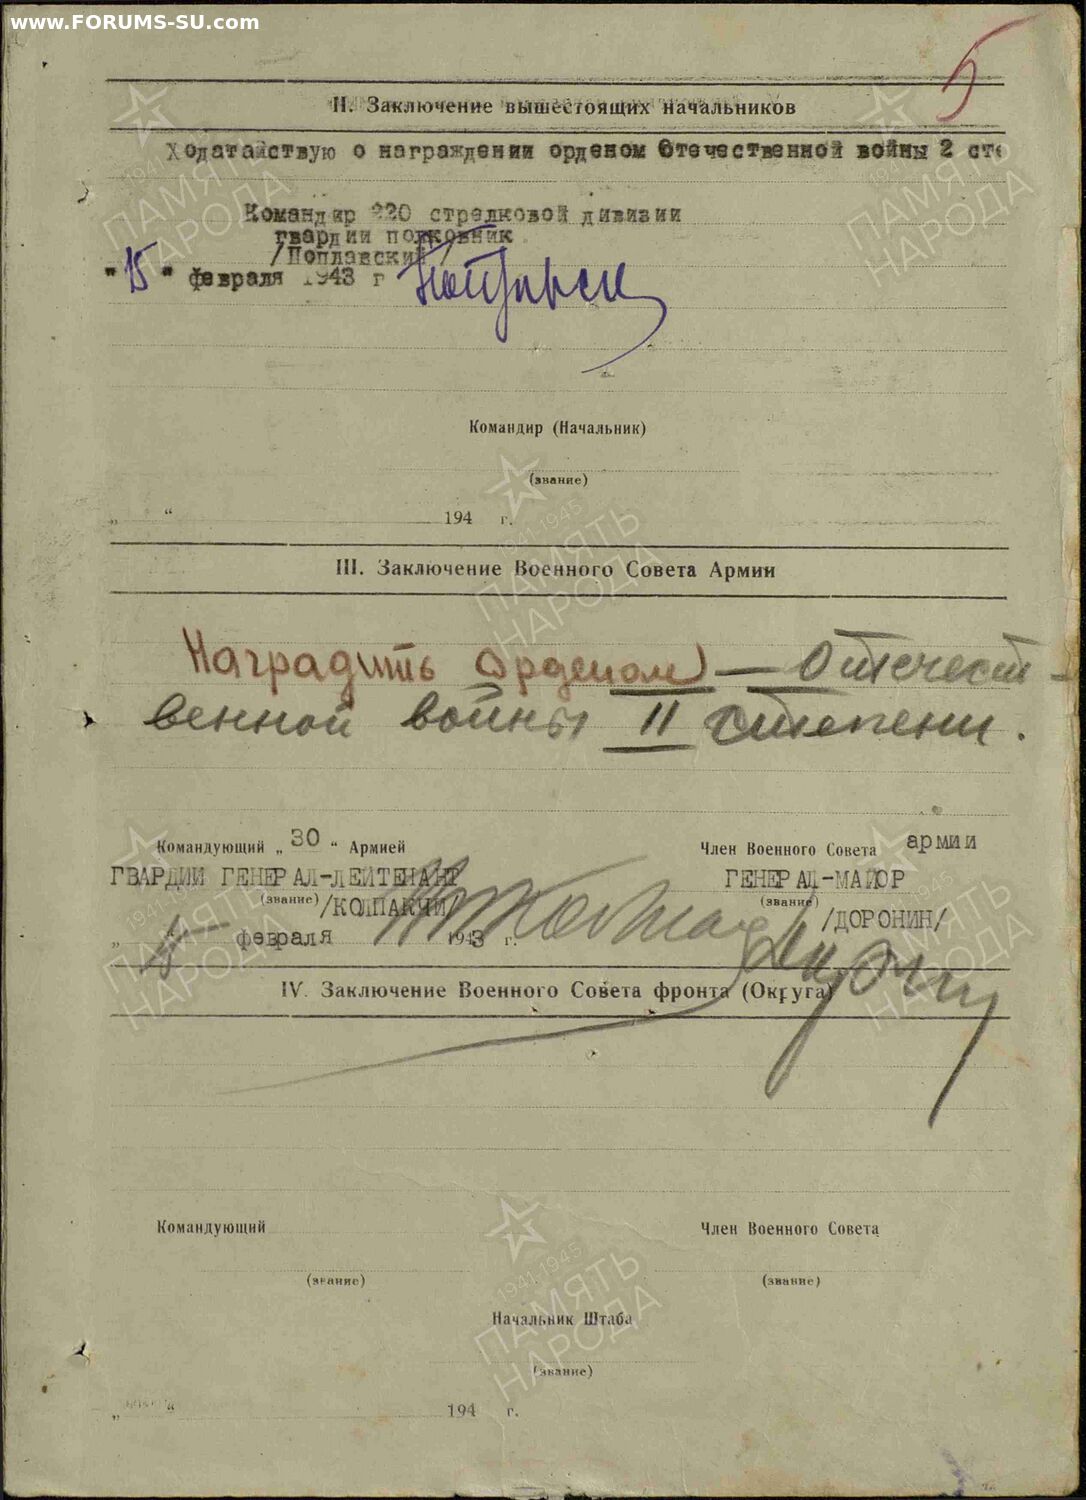 www.FORUMS-SU.com
5
II. Заключение вышестоящих начальников
Ходатайствую о награждении орденом Отечественной войны 2 сте
Командир 220 стрелковой дивизии
гвардии полковник
/Поплавский/
"15" февраля 1943 г
Командир (Начальник)
(звание)
„ “ 194 г.
III. Заключение Военного Совета Армии
Наградить орденом — Отечест-
венной войны II степени.
Командующий „30“ Армией
Член Военного Совета армии
ГВАРДИИ ГЕНЕРАЛ-ЛЕЙТЕНАНТ
ГЕНЕРАЛ-МАЙОР
(звание) /КОЛПАКЧИ/
(звание) /ДОРОНИН/
„ “ февраля 1943 г.
IV. Заключение Военного Совета фронта (Округа)
Командующий
Член Военного Совета
(звание)
(звание)
Начальник Штаба
(звание)
„ “ 194 г.
1941-1945
ПАМЯТЬ
НАРОДА